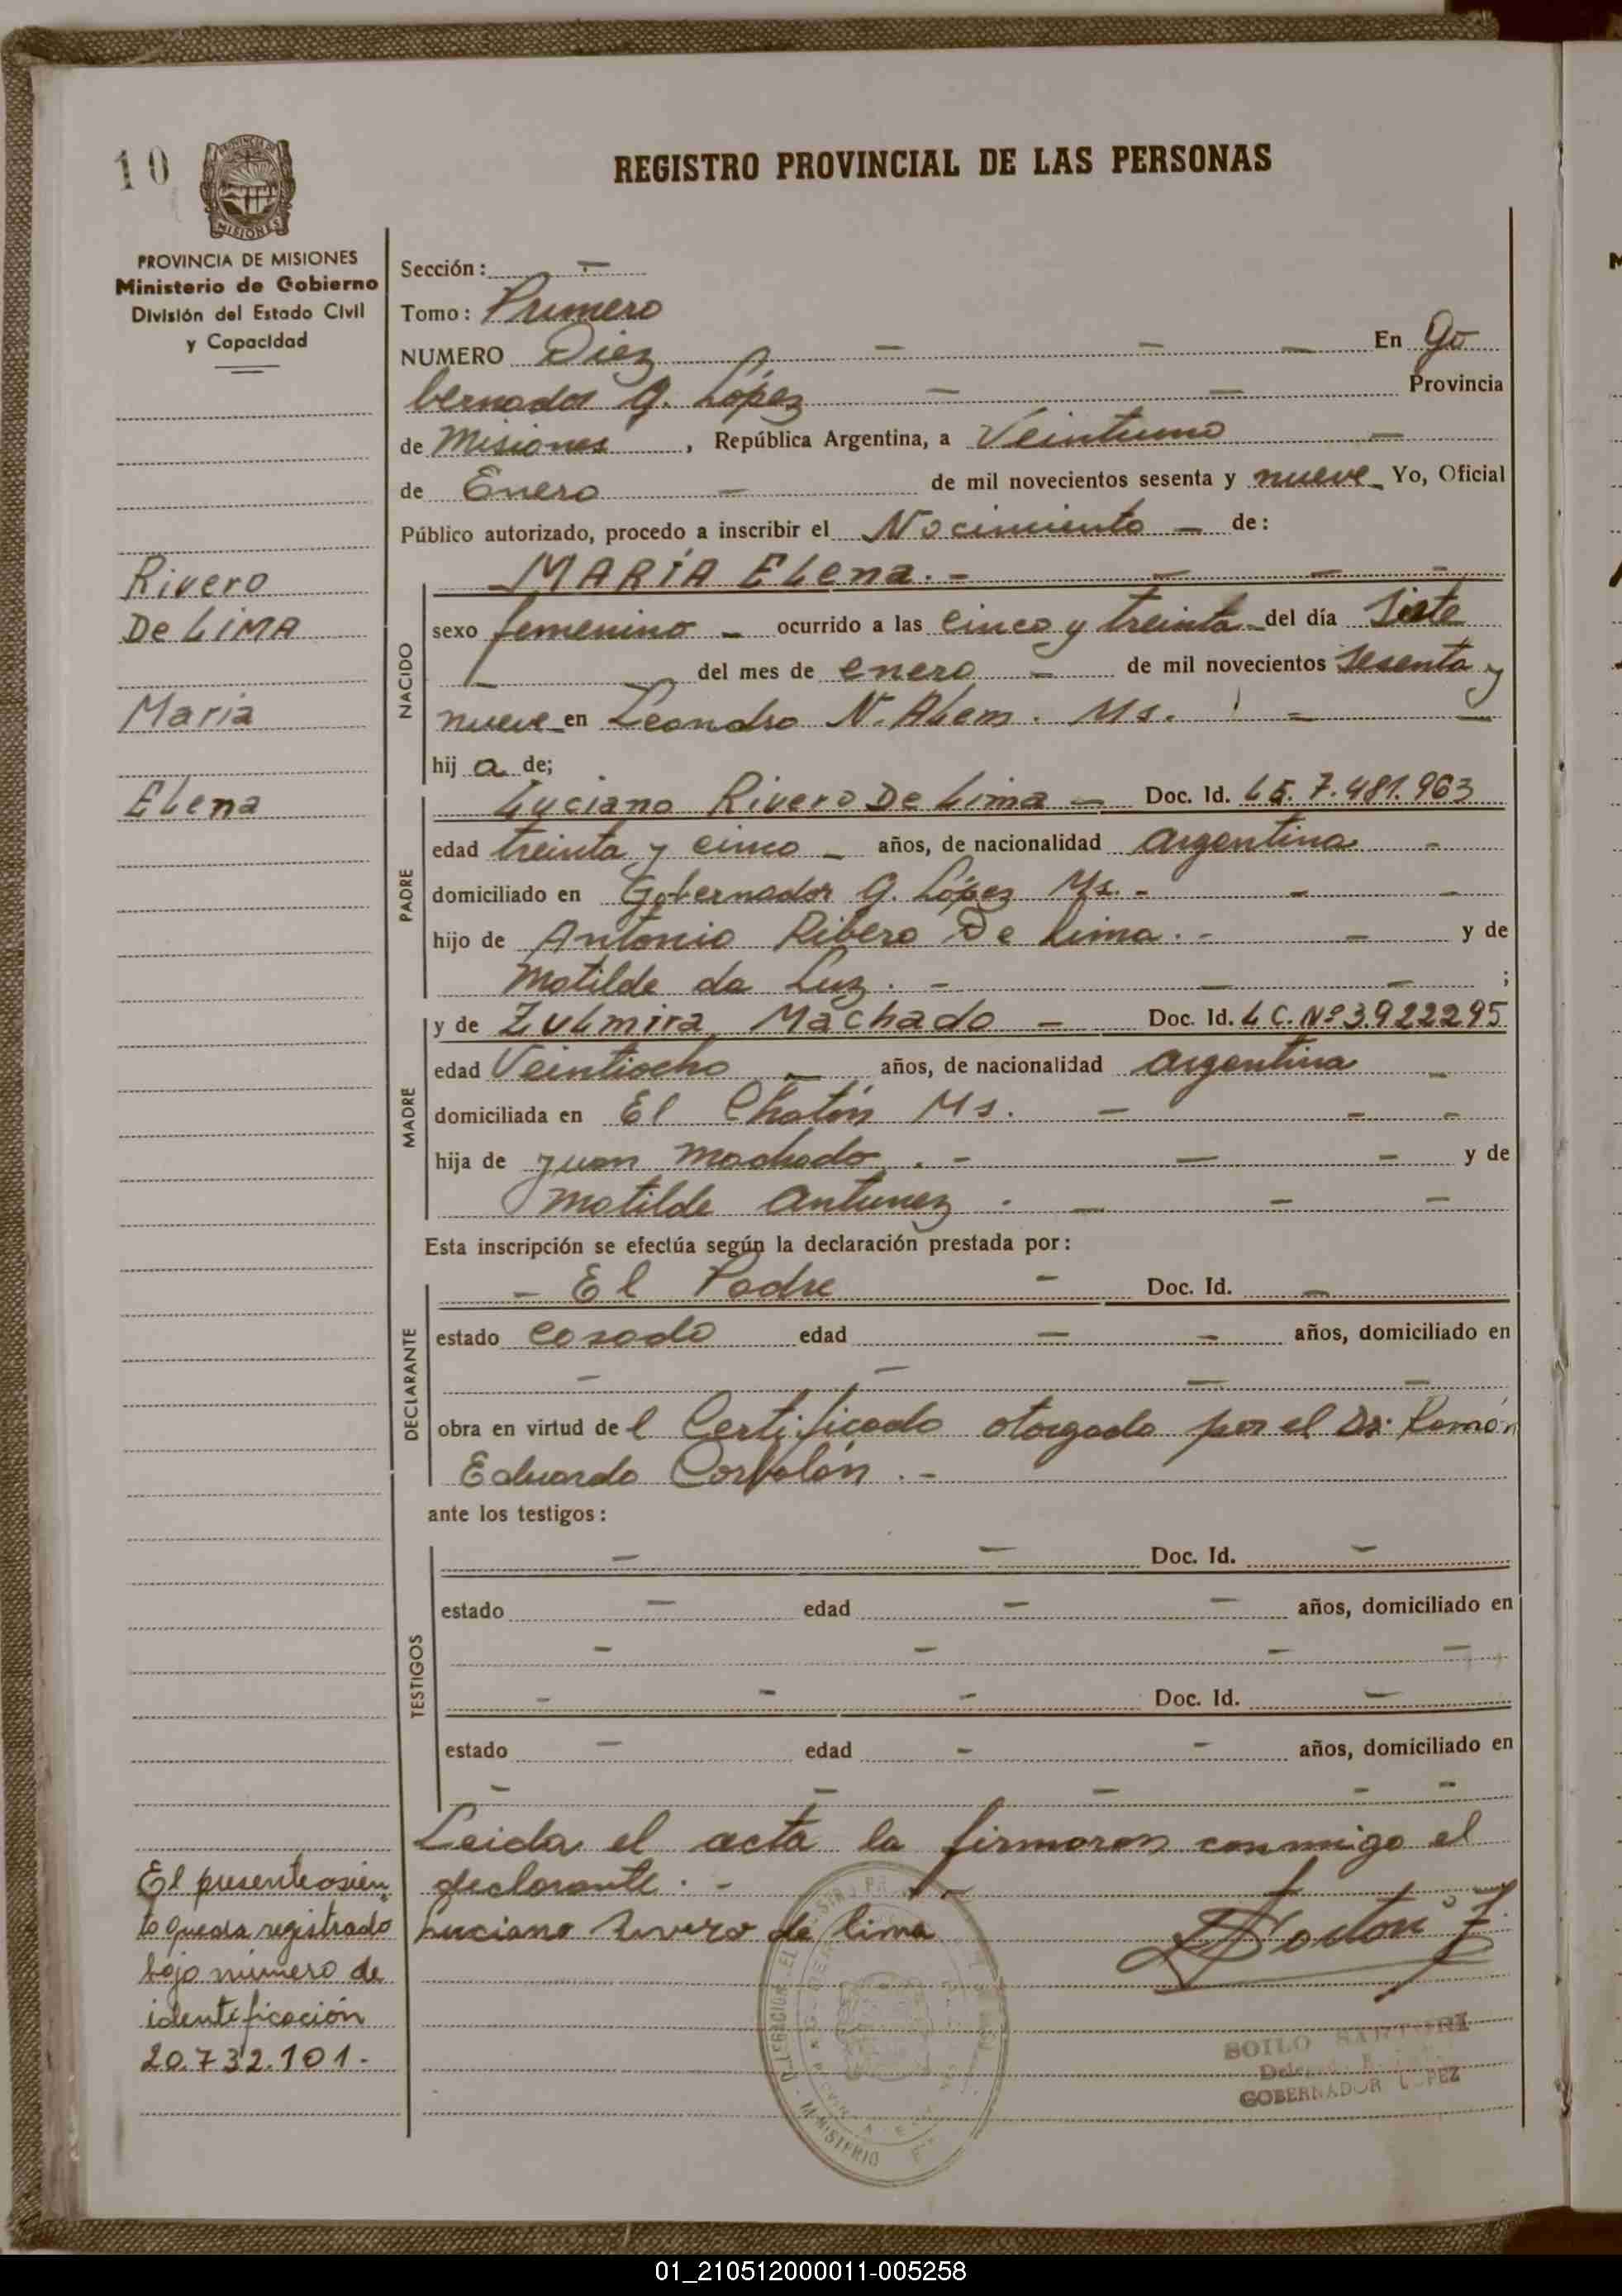 10
REGISTRO PROVINCIAL DE LAS PERSONAS
MISIONES
PROVINCIA DE MISIONES
Ministerio de Gobierno
División del Estado Civil
y Capacidad
Sección: —
Tomo: Primero
NUMERO Diez — — — En Go
bernador G. López — — Provincia
de Misiones, República Argentina, a Veintiuno —
de Enero — de mil novecientos sesenta y nueve — Yo, Oficial
Público autorizado, procedo a inscribir el Nacimiento — de:
Rivero
De LIMA
Maria
ELena
NACIDO
MARÍA ELena. — — — —
sexo femenino — ocurrido a las cinco y treinta — del día Siete
— del mes de enero — de mil novecientos sesenta y
nueve — en Leandro N. ALem. Ms. — —
hij a de;
PADRE
Luciano Rivero De Lima — Doc. Id. L E. 7.481.963
edad treinta y cinco — años, de nacionalidad argentina —
domiciliado en Gobernador G. López Ms. — — —
hijo de Antonio Ribero De Lima. — — y de
Matilde da Luz. — — — ;
MADRE
y de ZuLmira Machado — Doc. Id. L C. Nº 3.922295
edad Veintiocho — años, de nacionalidad argentina —
domiciliada en El Chatón Ms. — — —
hija de Juan Machado. — — — y de
Matilde Antunez. — — —
Esta inscripción se efectúa según la declaración prestada por:
DECLARANTE
— El Padre — Doc. Id. —
estado casado edad — — años, domiciliado en
— — — —
obra en virtud de l Certificado otorgado por el Dr. Ramón
Eduardo Corbalán. —
ante los testigos:
TESTIGOS
— — Doc. Id. —
estado — edad — — años, domiciliado en
— — — —
— — — Doc. Id. —
estado — edad — — años, domiciliado en
— — — — —
Leida el acta la firmaron conmigo el
declarante. — —
Luciano Rivero de lima
El presente asien
to queda registrado
bajo número de
identificación
20.732.101.-
MINISTERIO
SOILO SARTORI
GOBERNADOR LOPEZ
01_210512000011-005258